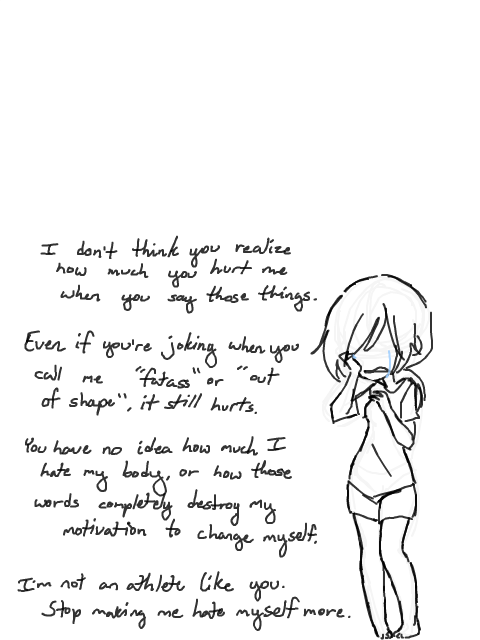 I don't think you realize
how much you hurt me
when you say those things.
Even if you're joking when you
call me "fatass" or "out
of shape", it still hurts.
You have no idea how much I
hate my body, or how those
words completely destroy my
motivation to change myself.
I'm not an athlete like you.
Stop making me hate myself more.